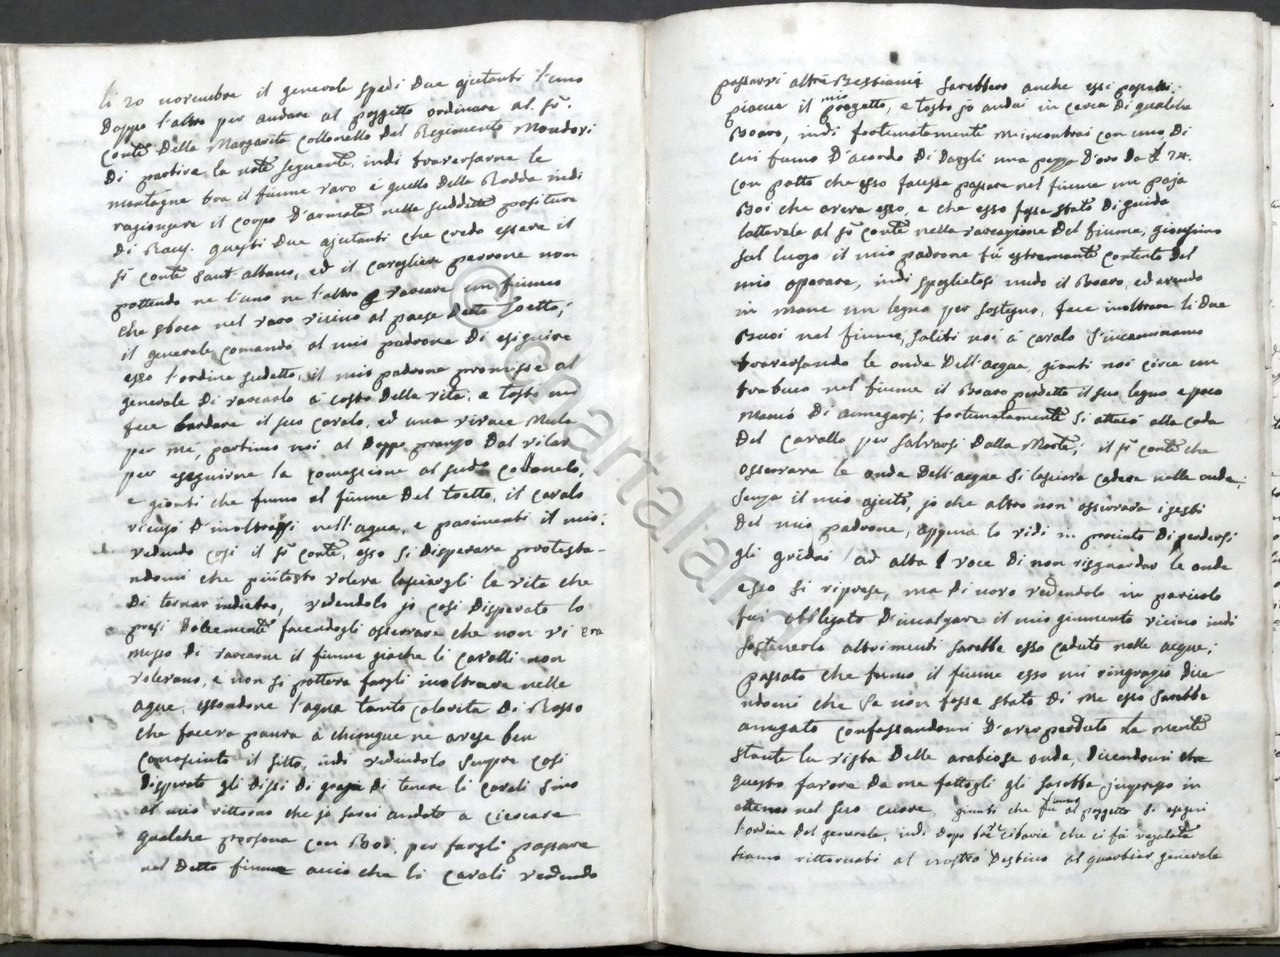 li 20 novembre il generale spedi due ajutanti l'uno
doppo l'altro per andare al poggetto ordinare al Sr.
Conte Della Margarita Collonello del Regimento Mondovi
di partire la notte seguente, indi traversarne le
montagne tra il fiume varo e quello della Rodda indi
ragionere il corpo d'armata nella suddetta positura
di Raus. questi due ajutanti che credo essere il
Sr conte Sant albano, ed il cavagliere perrone non
pottendo ne l'uno ne l'altro varcare un fiume
che sboca nel varo vicino al paese detto toetto,
il generale comando al mio padrone di esiguire
esso l'ordine sudetto, il mio padrone promisse al
generale di varcarlo a costo della vita, e tosto mi
fece bardare il suo cavalo, ed una vivace Mula
per me, partimo noi al doppo pranzo dal vilar
per eseguirne la comessione al sudo Collonelo,
e gionti che fumo al fiume del toetto, il cavalo
d'inoltrarsi nell'aqua, e parimenti il mio.
vedendo cosi il Sr conte, esso si disperava protesta-
ndomi che piutosto voleva lasciargli la vita che
di tornar indietro, vedendolo jo cosi disperato lo
presi dolcemente facendogli osservare che non vi era
messo di varcarne il fiume giache li cavalli non
volevano, e non si potteva fargli inoltrare nelle
aque, essendone l'aqua tanto colorita di Rosso
che faceva paura a chiunque ne avese ben
conosciuto il sitto, indi vedendolo sempre cosi
disperato gli dissi di grazia di tenere li cavali sino
al mio rittorno che jo sarei andato a cercare
qualche persona con Boi, per fargli passare
nel detto fiume acio che li cavali vedendo
passarvi altre Bestiami sarebbero anche essi passati.
piacue il mio progetto, e tosto jo andai in cerca di qualche
Boaro, indi fortunatamente m'incontrai con uno di
cui fumo d'acordo di dargli una pezza d'oro da £ 24.
con patto che esso facesse passare nel fiume un paja
Boi che aveva esso, e che esso fosse stato di guida
latterale al Sr conte nella varcazione del fiume, gionsimo
sul luogo il mio padrone fu estremamente contento del
mio operare, indi spogliatosi nudo il Boaro, ed avendo
in mano un legno per sostegno, fece inoltrare li due
Buoi nel fiume, saliti noi a cavalo s'incaminamo
traversando le onde dell'acqua, gionti noi circa un
trabuco nel fiume il Boaro perdette il suo legno e poco
mancò di annegarsi, fortunatamente si attacò alla coda
del cavallo per salvarsi dalla Morte; il Sr conte che
osservava le onde dell'acqua si lasciava cadere nelle onde
senza il mio ajuto, jo che altro non osservava i gesti
del mio padrone, appena lo vidi in procinto di perdersi
gli gridai ad alta voce di non risguardar le onde
esso si riprese, ma di novo vedendolo in pericolo
fui obbligato d'incalzare il mio giumento vicino indi
sostenerlo altrimenti sarebbe esso caduto nelle acque;
passato che fumo il fiume esso mi ringrazio dice
ndomi che se non fosse stato di me esso sarebbe
anegato confessandomi d'aver perduto la mente
stante la vista delle arabiose onde, dicendomi che
questo favore da me fattogli gli sarebbe impresso in
etterno nel suo cuore, gionti che fumo al poggetto si esegui
l'ordine del generale, indi dopo brà cibarie che ci fu regalata
siamo rittornati al nostro destino al quartier generale